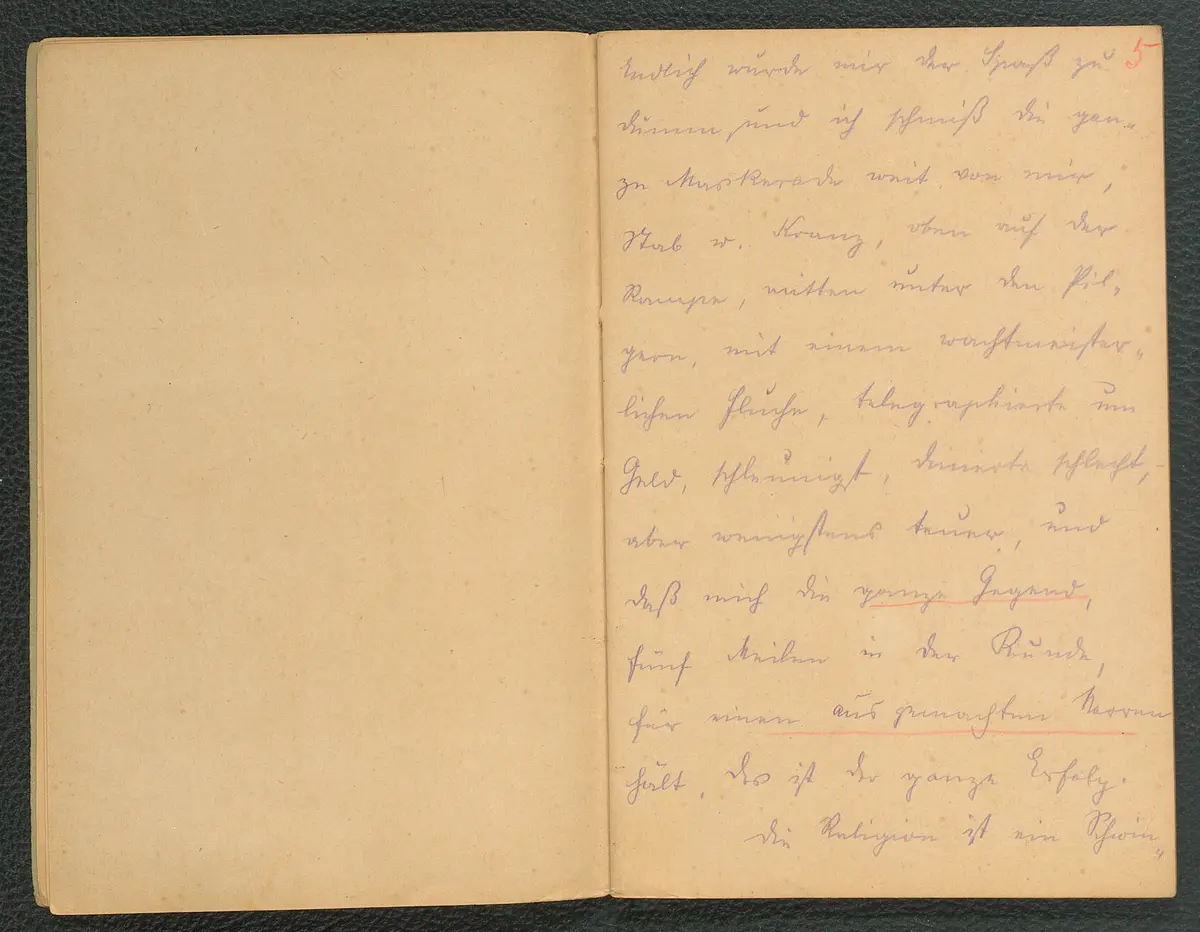 5
Endlich wurde mir der Spaß zu
dumm, und ich schmiß die gan-
ze Maskerade weit von mir,
Stab u. Kranz, oben auf der
Rampe, mitten unter den Pil-
gern, mit einem wachtmeister-
lichen Fluche, telegraphierte um
Geld, schleunigst, dinierte schlecht,
aber wenigstens teuer, und
daß mich die ganze Gegend,
fünf Meilen in der Runde,
für einen ausgemachten Narren
hält, das ist der ganze Erfolg.
Die Religion ist ein Schwin-